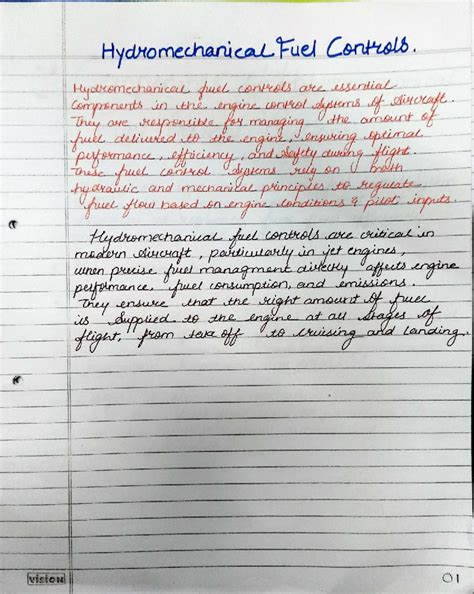 Hydromechanical Fuel Controls.
Hydromechanical fuel controls are essential
components in the engine control systems of Aircraft.
They are responsible for managing the amount of
fuel delivered to the engine, ensuring optimal
performance, efficiency, and Safety during flight.
These fuel control Systems rely on both
hydraulic and mechanical principles to regulate
fuel flow based on engine conditions & pilot inputs.
Hydromechanical fuel controls are critical in
modern Aircraft, particularly in jet engines,
when precise fuel managment directly affects engine
performance, fuel consumption, and emissions.
They ensure that the right amount of fuel
is Supplied to the engine at all stages of
flight, from take off to cruising and landing
vision
01